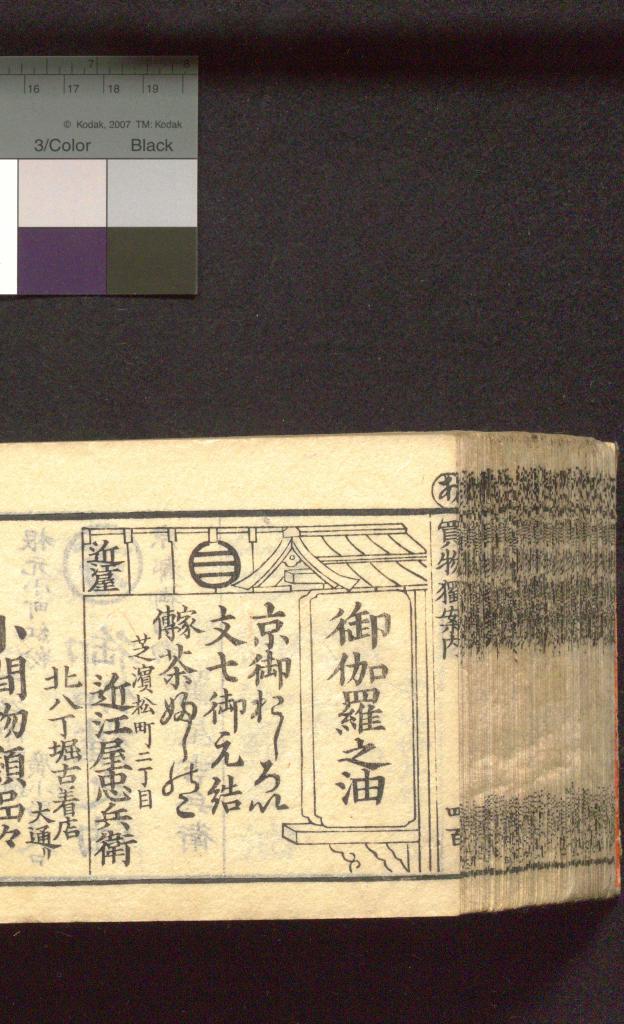 7 8
16 17 18 19
© Kodak, 2007 TM: Kodak
3/Color Black
買物獨案内
四百
御伽羅之油
近江屋
京御おしろい
文七御元結
家傳
芝濱松町二丁目
近江屋忠兵衛
北八丁堀古着店
大通り
小間物類品々